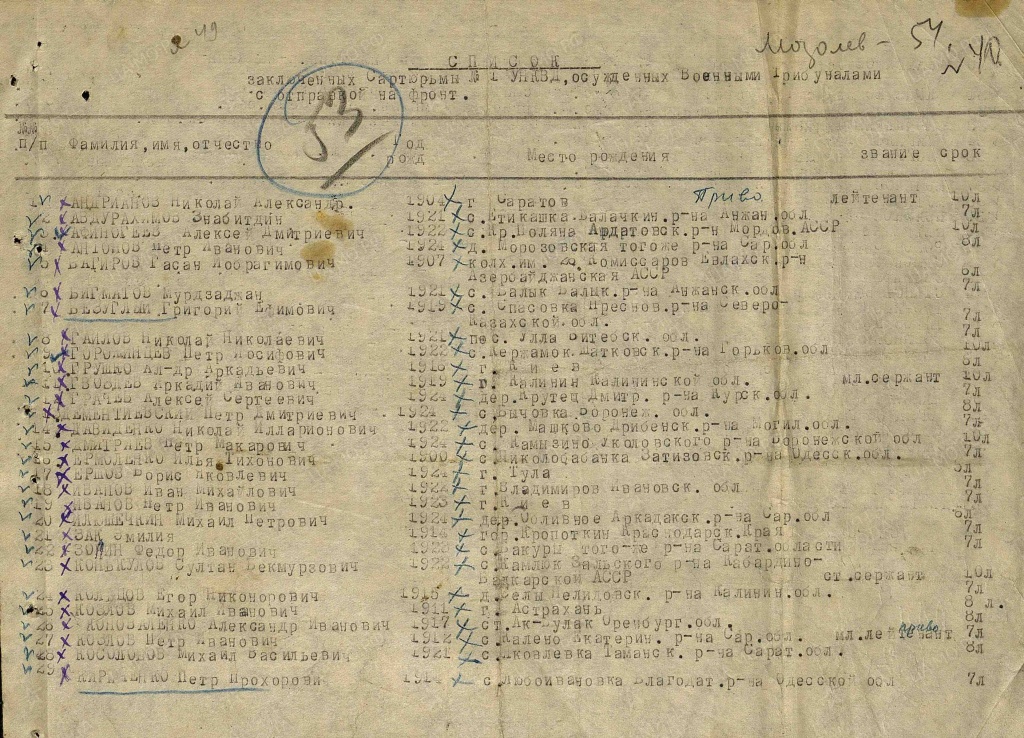 49
Мозолев - 54
СПИСОК
заключенных Сартюрьмы № 1 УНКВД, осужденных Военными Трибуналами
с отправкой на фронт.
53
№№
п/п Фамилия, имя, отчество Год рожд Место рождения звание срок
Приво
1 АНДРИАНОВ Николай Александр. 1904 г Саратов лейтенант 10л
2 АБДУРАХИМОВ Знабитдин 1921 с.Етикашка Балачкин.р-на Анжан.обл 7л
3 АФИНОГЕЕВ Алексей Дмитриевич 1922 с.Кр.Поляна Ардатовск.р-н Мордов.АССР 10л
4 АНТОНОВ Петр Иванович 1924 д. Морозовская тогоже р-на Сар.обл 8л
5 БАГИРОВ Гасан Иобрагимович 1907 колх.им. 26 Комиссаров Евлахск.р-н
Азербайджанская АССР 8л
6 БИГМАТОВ Мурдзаджан 1921 с. Балык Балык.р-на Анжанск.обл 7л
7 БЕЗУГЛЫЙ Григорий Ефимович 1919 с. Спасовка Преснов.р-на Северо-
Казахской.обл. 7л
8 Николай Николаевич 1921 пос. Улла Витебск. обл. 7л
9 ГОРОЖАНЦЕВ Петр Иосифович 1922 с.Кержамок Шатковск.р-на Горьков.обл 10л
10 ГРУШКО Ал-др Аркадьевич 1918 г. Киев 8л
11 ГВОЗДЕВ Аркадий Иванович 1919 г. Калинин Калининской обл. мл.сержант 10л
12 ГРАЧЕВ Алексей Сергеевич 1924 дер.Крутец Дмитр. р-на Курск.обл. 7л
ДЕМЕНТИЕВСКИЙ Петр Дмитриевич 1924 с.Бычовка Воронеж. обл. 8л
14 ДАВИДЕНКО Николай Илларионович 1922 дер. Машково Дрибенск.р-на Могил.обл. 7л
15 ДМИТРИЕВ Петр Макарович 1924 с. Камызино Уколовского р-на Воронежской обл 10л
16 ЕРМОЛЕНКО Илья Тихонович 1900 с.Николобабанка Затизовск.р-на Одесск.обл. 7л
17 ЕРМОВ Борис Яковлевич 1924 г. Тула
18 ИВАНОВ Иван Михайлович 1922 г.Владимиров Ивановск. обл 7л
19 ИВАНОВ Петр Иванович 1923 г.Киев 7л
20 ИЛЮШЕЧКИН Михаил Петрович 1924 дер.Обливное Аркадакск.р-на Сар.обл 8л
21 ЗАК Эмилия 1914 гор.Кропоткин Краснодарск.Края 7л
22 Федор Иванович 1922 с.Бакуры того-же р-на Сарат.области 7л
23 КОНЬКУЛОВ Султан Бекмурзович 1922 с.Камлюк Зальского р-на Кабардино-
Балкарской АССР ст.сержант 10л
24 КОЛЬЦОВ Егор Никонорович 1915 д.Белы Нелидовск. р-на Калинин.обл. 7л
25 КОЗЛОВ Михаил Иванович 1911 г. Астрахань 8 л.
26 КОНОВАЛЕНКО Александр Иванович 1917 ст.Ак-Булак Оренбург.обл. приво
27 КОЗЛОВ Петр Иванович 1912 с.Калено Екатерин. р-на Сар.обл. мл.лейтенант 7л
28 КОСОЛОБОВ Михаил Васильевич 1921 с.Яковлевка Таманск. р-на Сарат.обл. 8л
29 КИРИЧЕНКО Петр Прохорови 1914 с.Любоивановка Благодат.р-на Одесской обл 7л